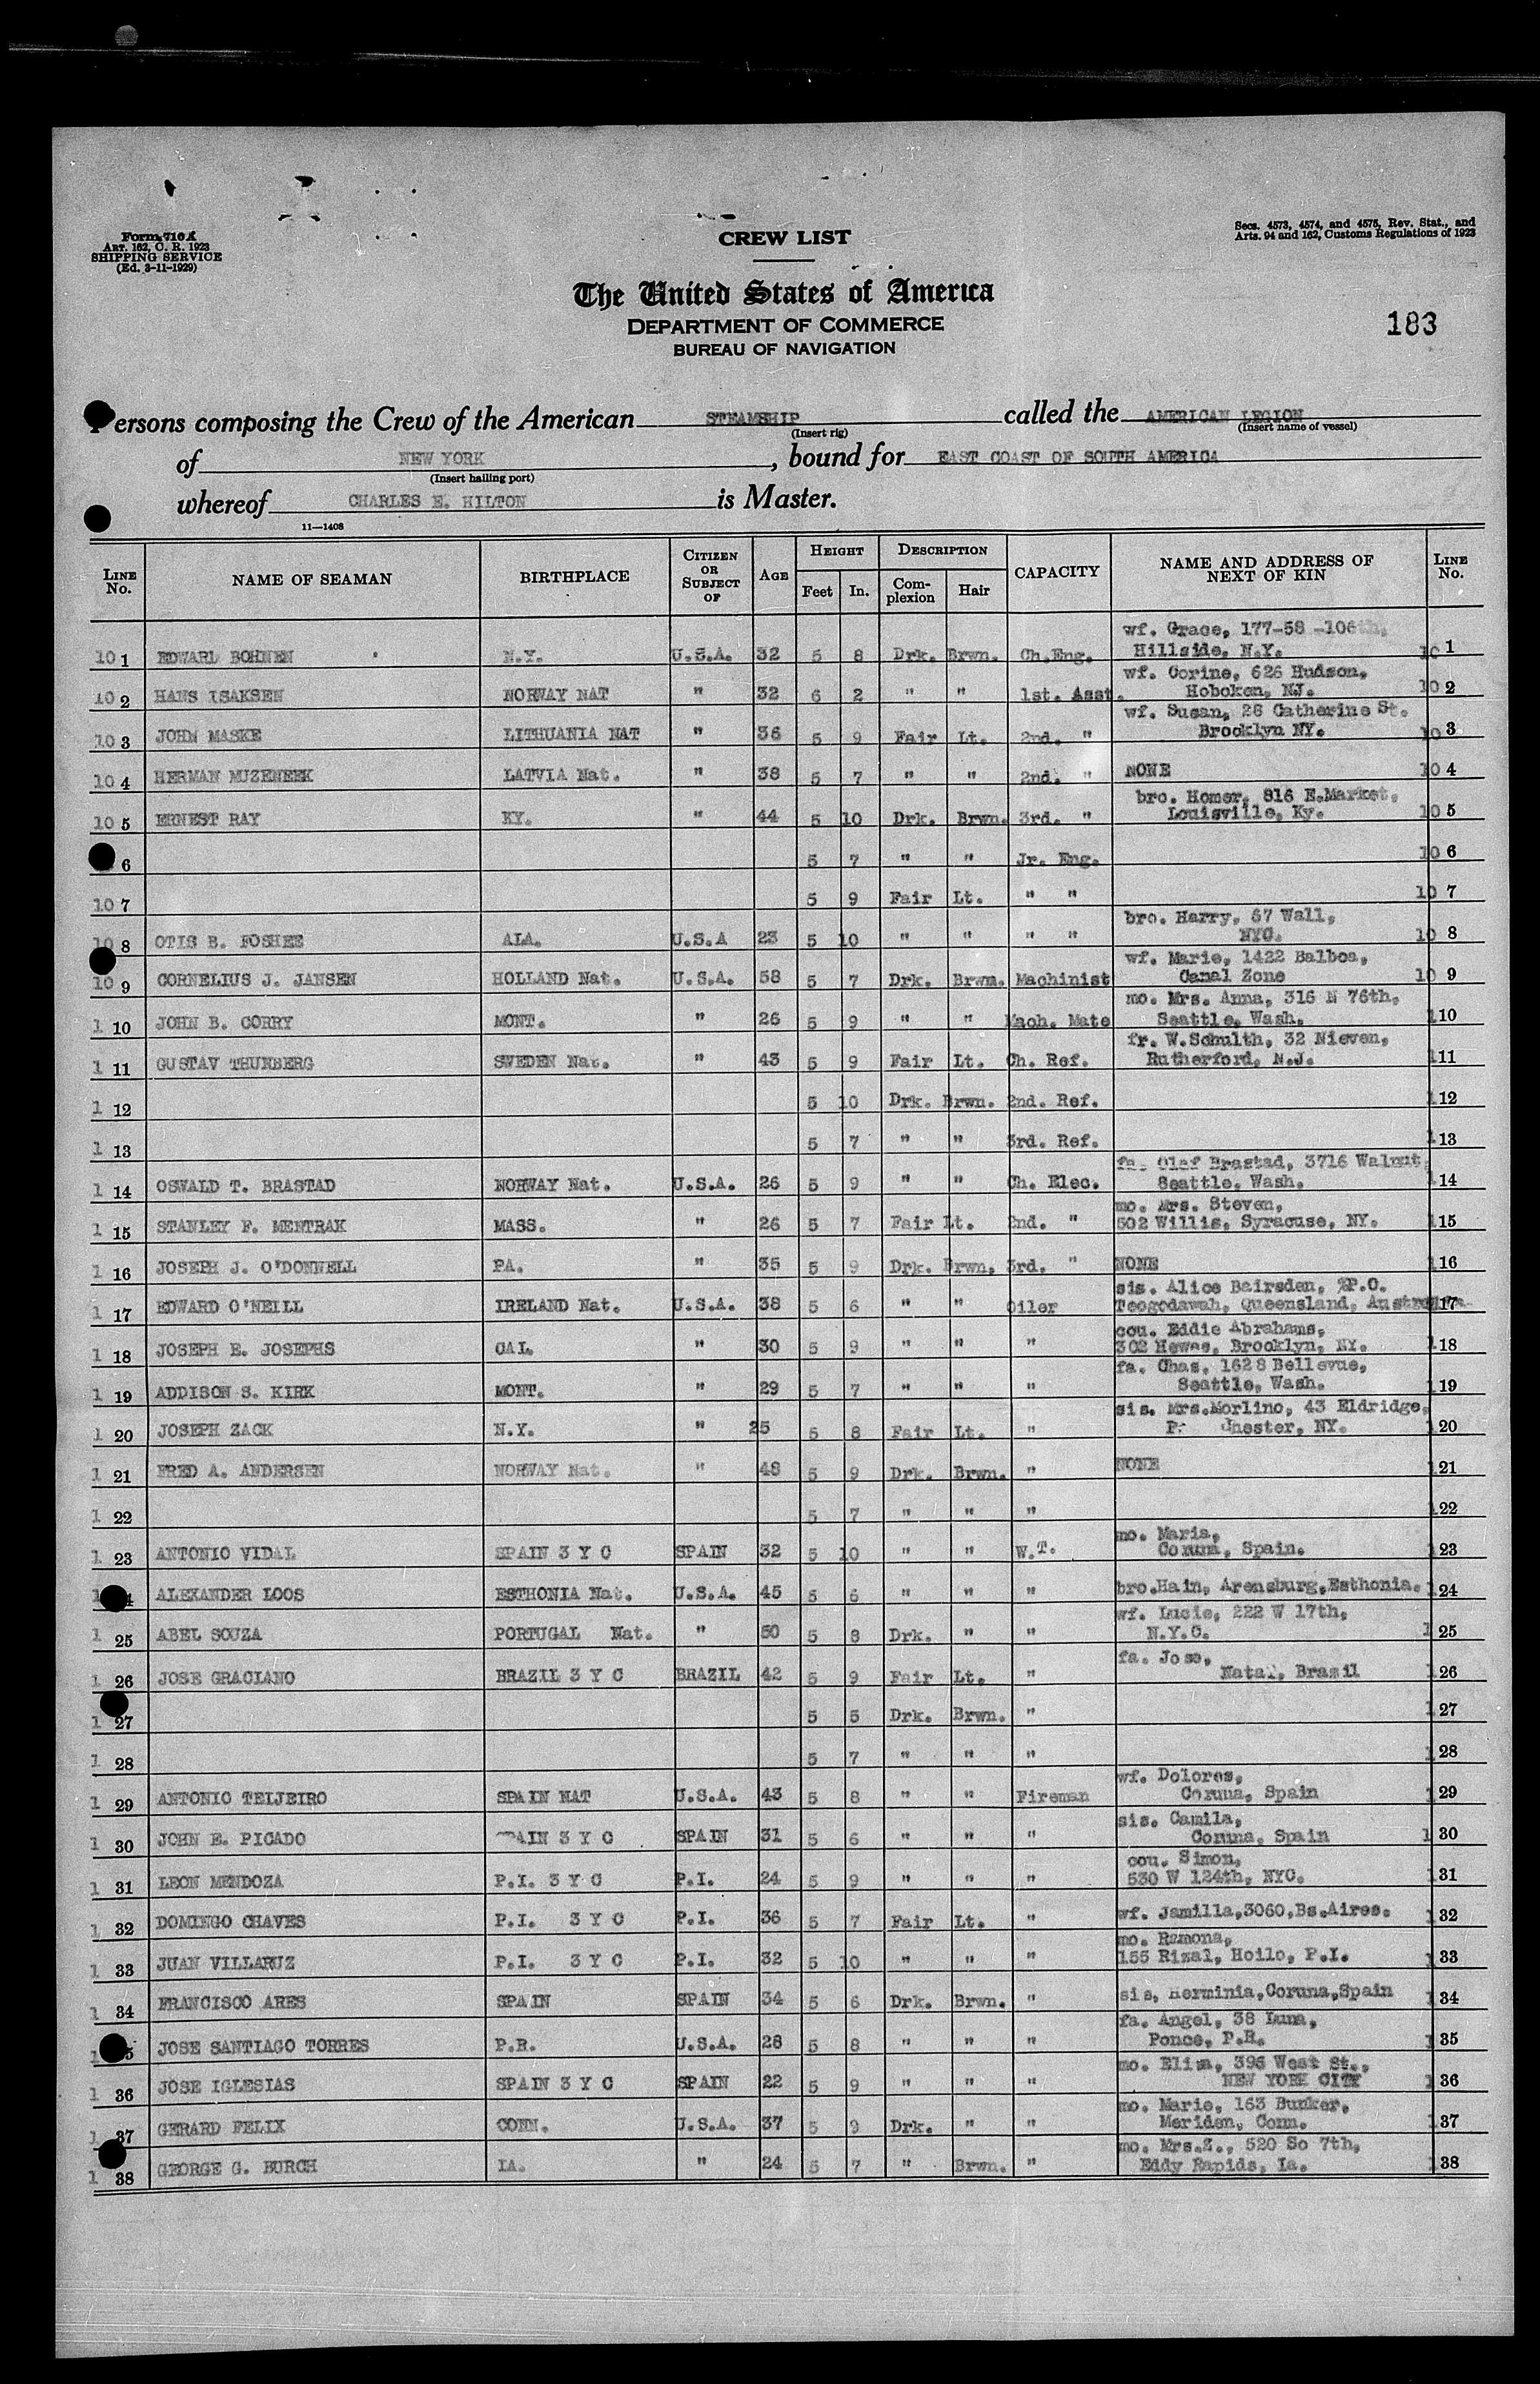 Form 710 A
Art. 162, C. R. 1923
SHIPPING SERVICE
(Ed. 3-11-1929)
CREW LIST
Secs. 4573, 4574, and 4575, Rev. Stat., and
Arts. 94 and 162, Customs Regulations of 1923
The United States of America
DEPARTMENT OF COMMERCE
BUREAU OF NAVIGATION
183
Persons composing the Crew of the American STEAMSHIP called the AMERICAN LEGION
(Insert rig) (Insert name of vessel)
of NEW YORK, bound for EAST COAST OF SOUTH AMERICA
(Insert hailing port)
whereof CHARLES E. HILTON is Master.
11—1408
LINE No. NAME OF SEAMAN BIRTHPLACE CITIZEN OR SUBJECT OF AGE HEIGHT Feet In. DESCRIPTION Complexion Hair CAPACITY NAME AND ADDRESS OF NEXT OF KIN LINE No.
wf. Grace, 177-58 -106th,
10 1 EDWARD BOHNEN N.Y. U.S.A. 32 5 8 Drk. Brwn. Ch.Eng. Hillside, N.Y. 10 1
wf. Corine, 626 Hudson,
10 2 HANS ISAKSEN NORWAY NAT " 32 6 2 " " 1st. Asst. Hoboken, NJ. 10 2
wf. Susan, 28 Catherine St.
10 3 JOHN MASKE LITHUANIA NAT " 36 5 9 Fair Lt. 2nd. " Brooklyn NY. 10 3
10 4 HERMAN MUZENEEK LATVIA Nat. " 38 5 7 " " 2nd. " NONE 10 4
bro. Homer, 816 E.Market,
10 5 ERNEST RAY KY. " 44 5 10 Drk. Brwn. 3rd. " Louisville, Ky. 10 5
6 5 7 " " Jr. Eng. 10 6
10 7 5 9 Fair Lt. " " 10 7
bro. Harry, 67 Wall,
10 8 OTIS B. FOSHEE ALA. U.S.A 23 5 10 " " " " NYC. 10 8
wf. Marie, 1422 Balboa,
10 9 CORNELIUS J. JANSEN HOLLAND Nat. U.S.A. 58 5 7 Drk. Brwn. Machinist Canal Zone 10 9
mo. Mrs. Anna, 316 N 76th,
1 10 JOHN B. CORRY MONT. " 26 5 9 " " Mach. Mate Seattle, Wash. 110
fr. W.Schulth, 32 Nieven,
1 11 GUSTAV THUNBERG SWEDEN Nat. " 43 5 9 Fair Lt. Ch. Ref. Rutherford, N.J. 111
1 12 5 10 Drk. Brwn. 2nd. Ref. 112
1 13 5 7 " " 3rd. Ref. 113
fa. Olaf Brastad, 3716 Walnut,
1 14 OSWALD T. BRASTAD NORWAY Nat. U.S.A. 26 5 9 " " Ch. Elec. Seattle, Wash. 114
mo. Mrs. Steven,
1 15 STANLEY F. MENTRAK MASS. " 26 5 7 Fair Lt. 2nd. " 502 Willis, Syracuse, NY. 115
1 16 JOSEPH J. O'DONNELL PA. " 35 5 9 Drk. Brwn. 3rd. " NONE 116
sis. Alice Bairsden, %P.O.
1 17 EDWARD O'NEILL IRELAND Nat. U.S.A. 38 5 6 " " Oiler Toogodawah, Queensland, Australia 117
cou. Eddie Abrahams,
1 18 JOSEPH E. JOSEPHS CAL. " 30 5 9 " " " 302 Hewes, Brooklyn, NY. 118
fa. Chas, 1628 Bellevue,
1 19 ADDISON S. KIRK MONT. " 29 5 7 " " " Seattle, Wash. 119
sis. Mrs.Morlino, 43 Eldridge,
1 20 JOSEPH ZACK N.Y. " 25 5 8 Fair Lt. " chester, NY. 120
1 21 FRED A. ANDERSEN NORWAY Nat. " 48 5 9 Drk. Brwn. " NONE 121
1 22 5 7 " " " 122
mo. Maria,
1 23 ANTONIO VIDAL SPAIN 3 Y C SPAIN 32 5 10 " " W.T. Coruna, Spain. 123
ALEXANDER LOOS ESTHONIA Nat. U.S.A. 45 5 6 " " " bro.Hain, Arensburg,Esthonia. 124
wf. Lucie, 222 W 17th,
1 25 ABEL SOUZA PORTUGAL Nat. " 50 5 8 Drk. " " N.Y.C. 1 25
fa. Jose,
1 26 JOSE GRACIANO BRAZIL 3 Y C BRAZIL 42 5 9 Fair Lt. " Natal, Brazil 126
1 27 5 5 Drk. Brwn. " 127
1 28 5 7 " " " 128
wf. Dolores,
1 29 ANTONIO TEIJEIRO SPAIN NAT U.S.A. 43 5 8 " " Fireman Coruna, Spain 129
sis. Camila,
1 30 JOHN E. PICADO SPAIN 3 Y C SPAIN 31 5 6 " " " Coruna, Spain 1 30
cou. Simon,
1 31 LEON MENDOZA P.I. 3 Y C P.I. 24 5 9 " " " 530 W 124th, NYC. 131
1 32 DOMINGO CHAVES P.I. 3 Y C P.I. 36 5 7 Fair Lt. " wf. Jamilla,3060,Bs.Aires. 132
mo. Ramona,
1 33 JUAN VILLARUZ P.I. 3 Y C P.I. 32 5 10 " " " 155 Rizal, Hoilo, P.I. 133
1 34 FRANCISCO ARES SPAIN SPAIN 34 5 6 Drk. Brwn. " sis. Herminia,Coruna,Spain 134
fa. Angel, 38 Luna,
1 35 JOSE SANTIAGO TORRES P.R. U.S.A. 28 5 8 " " " Ponce, P.R. 135
mo. Eliza, 396 West St.,
1 36 JOSE IGLESIAS SPAIN 3 Y C SPAIN 22 5 9 " " " NEW YORK CITY 136
mo. Marie, 163 Bunker,
1 37 GERARD FELIX CONN. U.S.A. 37 5 9 Drk. " " Meriden, Conn. 137
mo. Mrs.Z., 520 So 7th,
1 38 GEORGE G. BURCH IA. " 24 5 7 " Brwn. " Eddy Rapids, Ia. 138